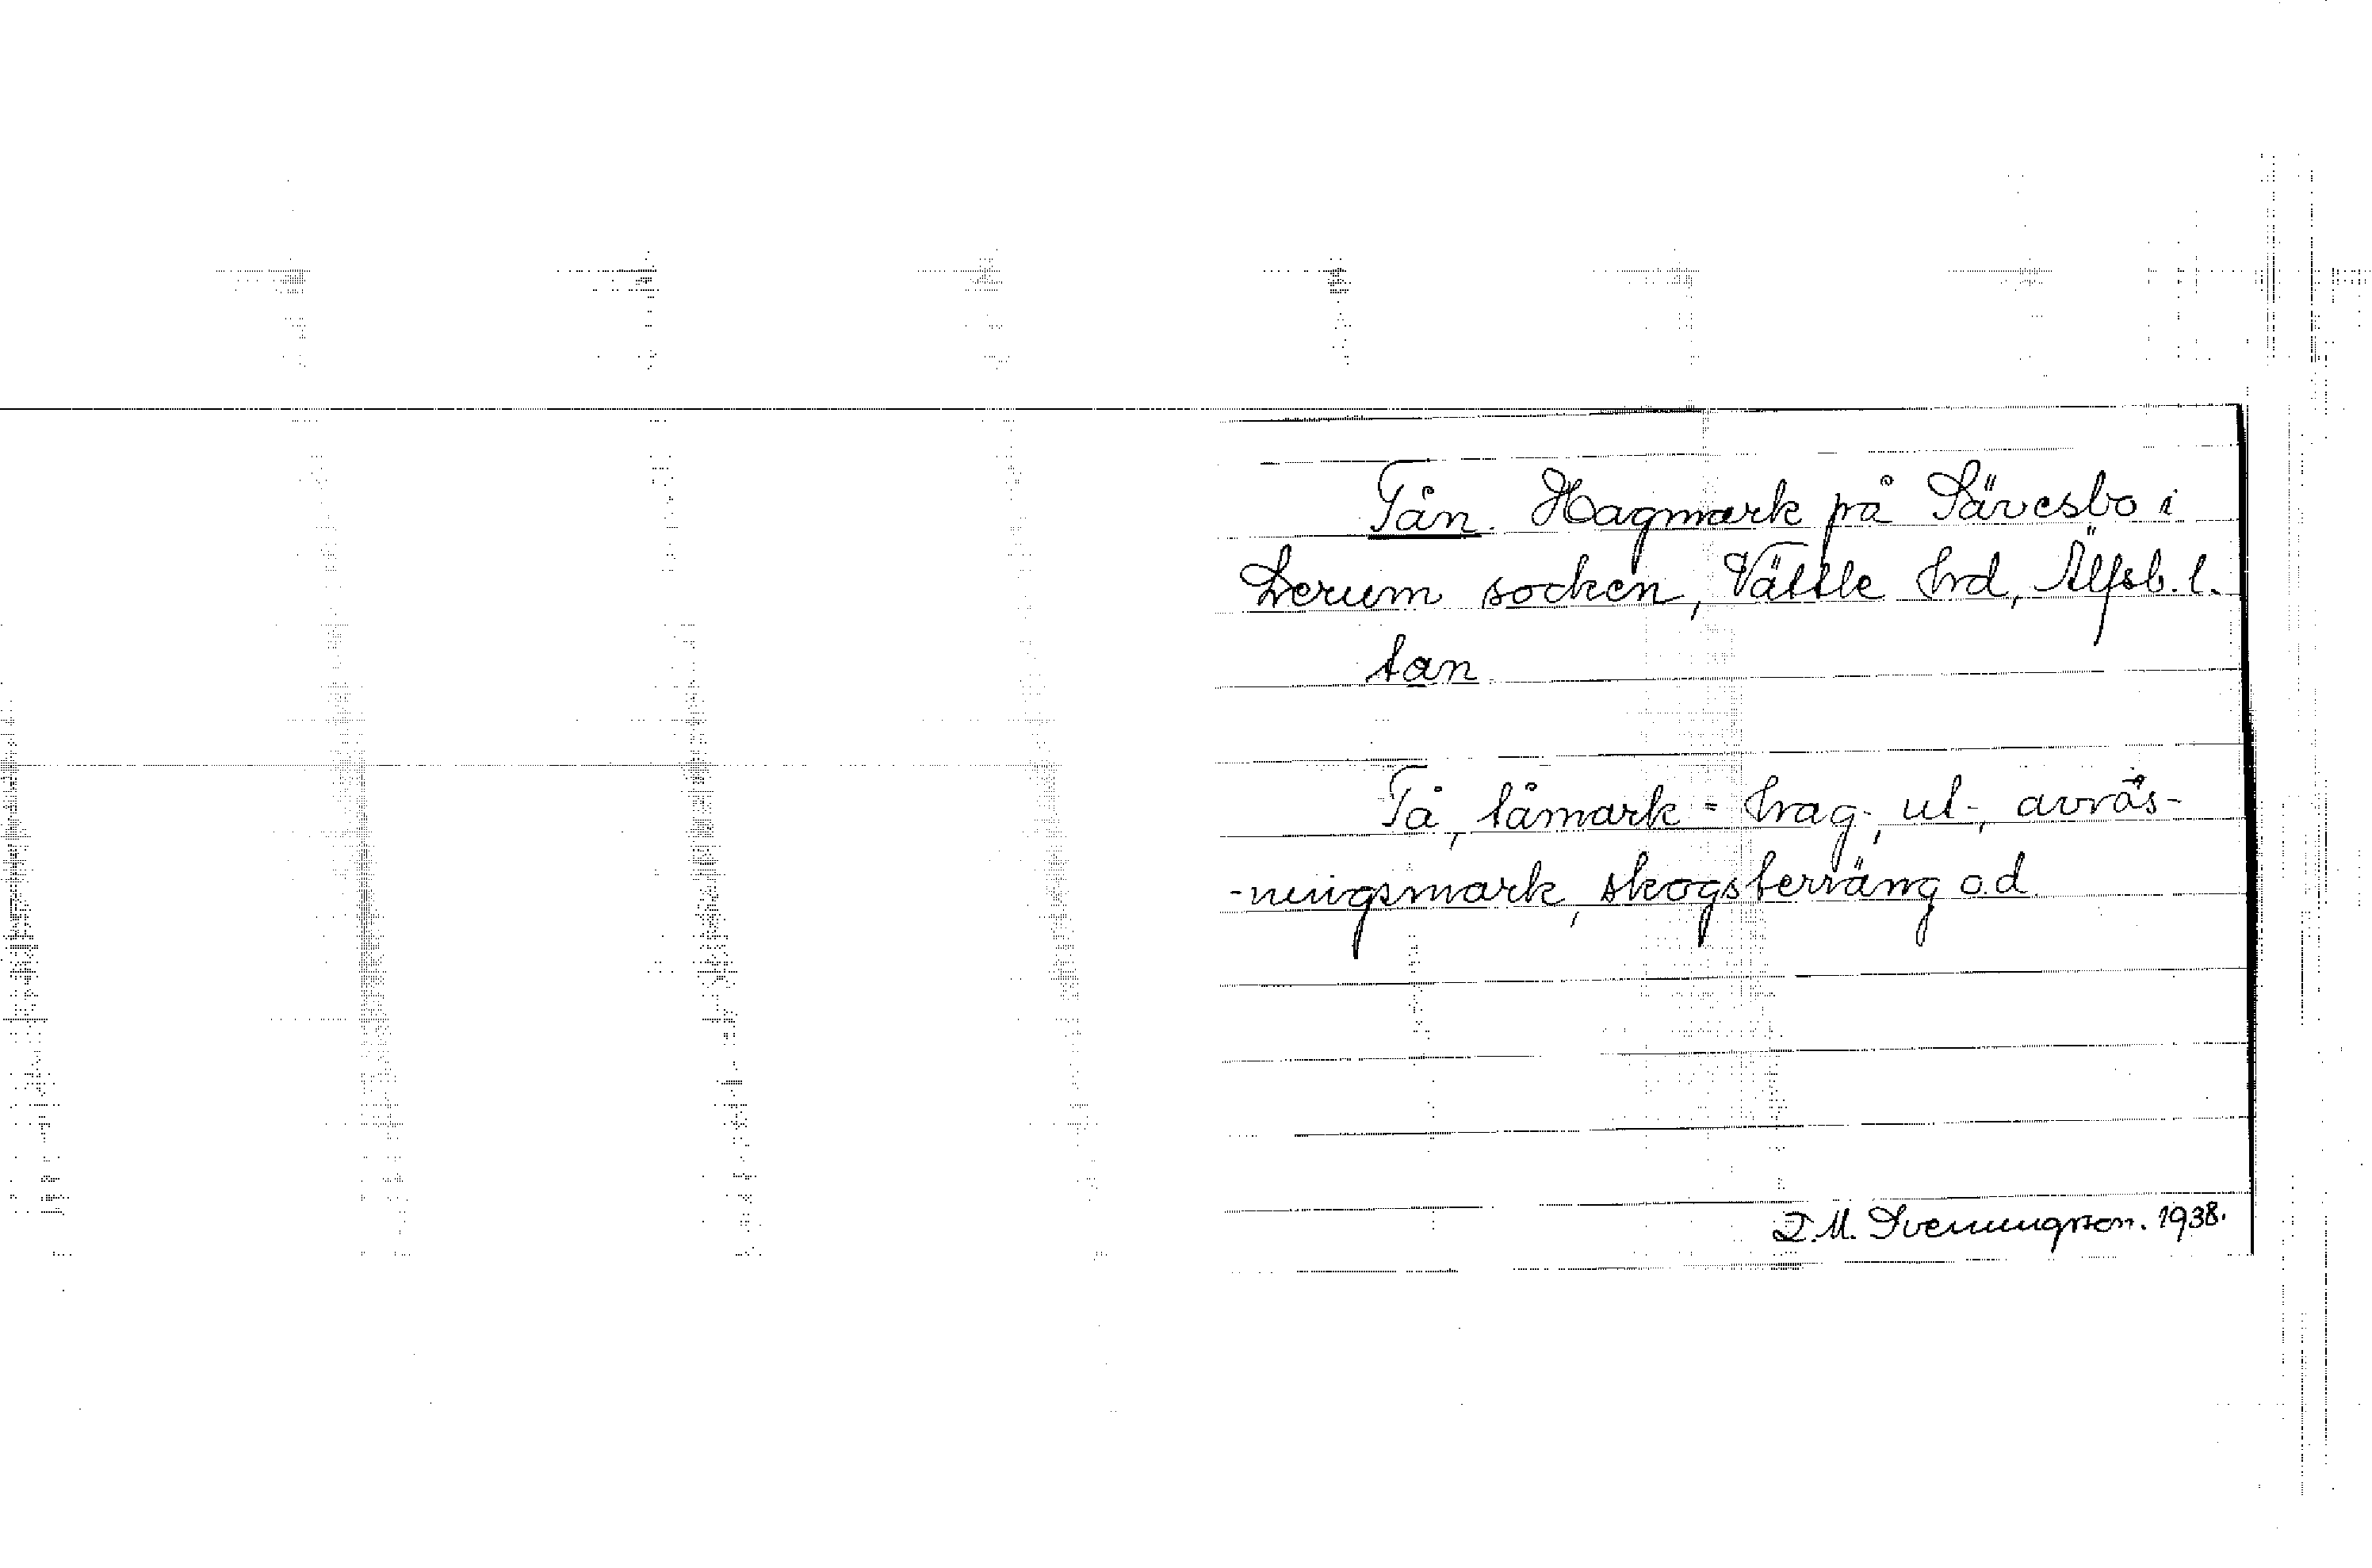 Tån. Hagmark på Sävesbo i
Lerum socken, Vättle hrd, Älfsb. l.
tan
Tå, tåmark = hag-, ut-, avrös-
-ningsmark, skogsterräng o.d.
D.M. Svenungsson. 1938.